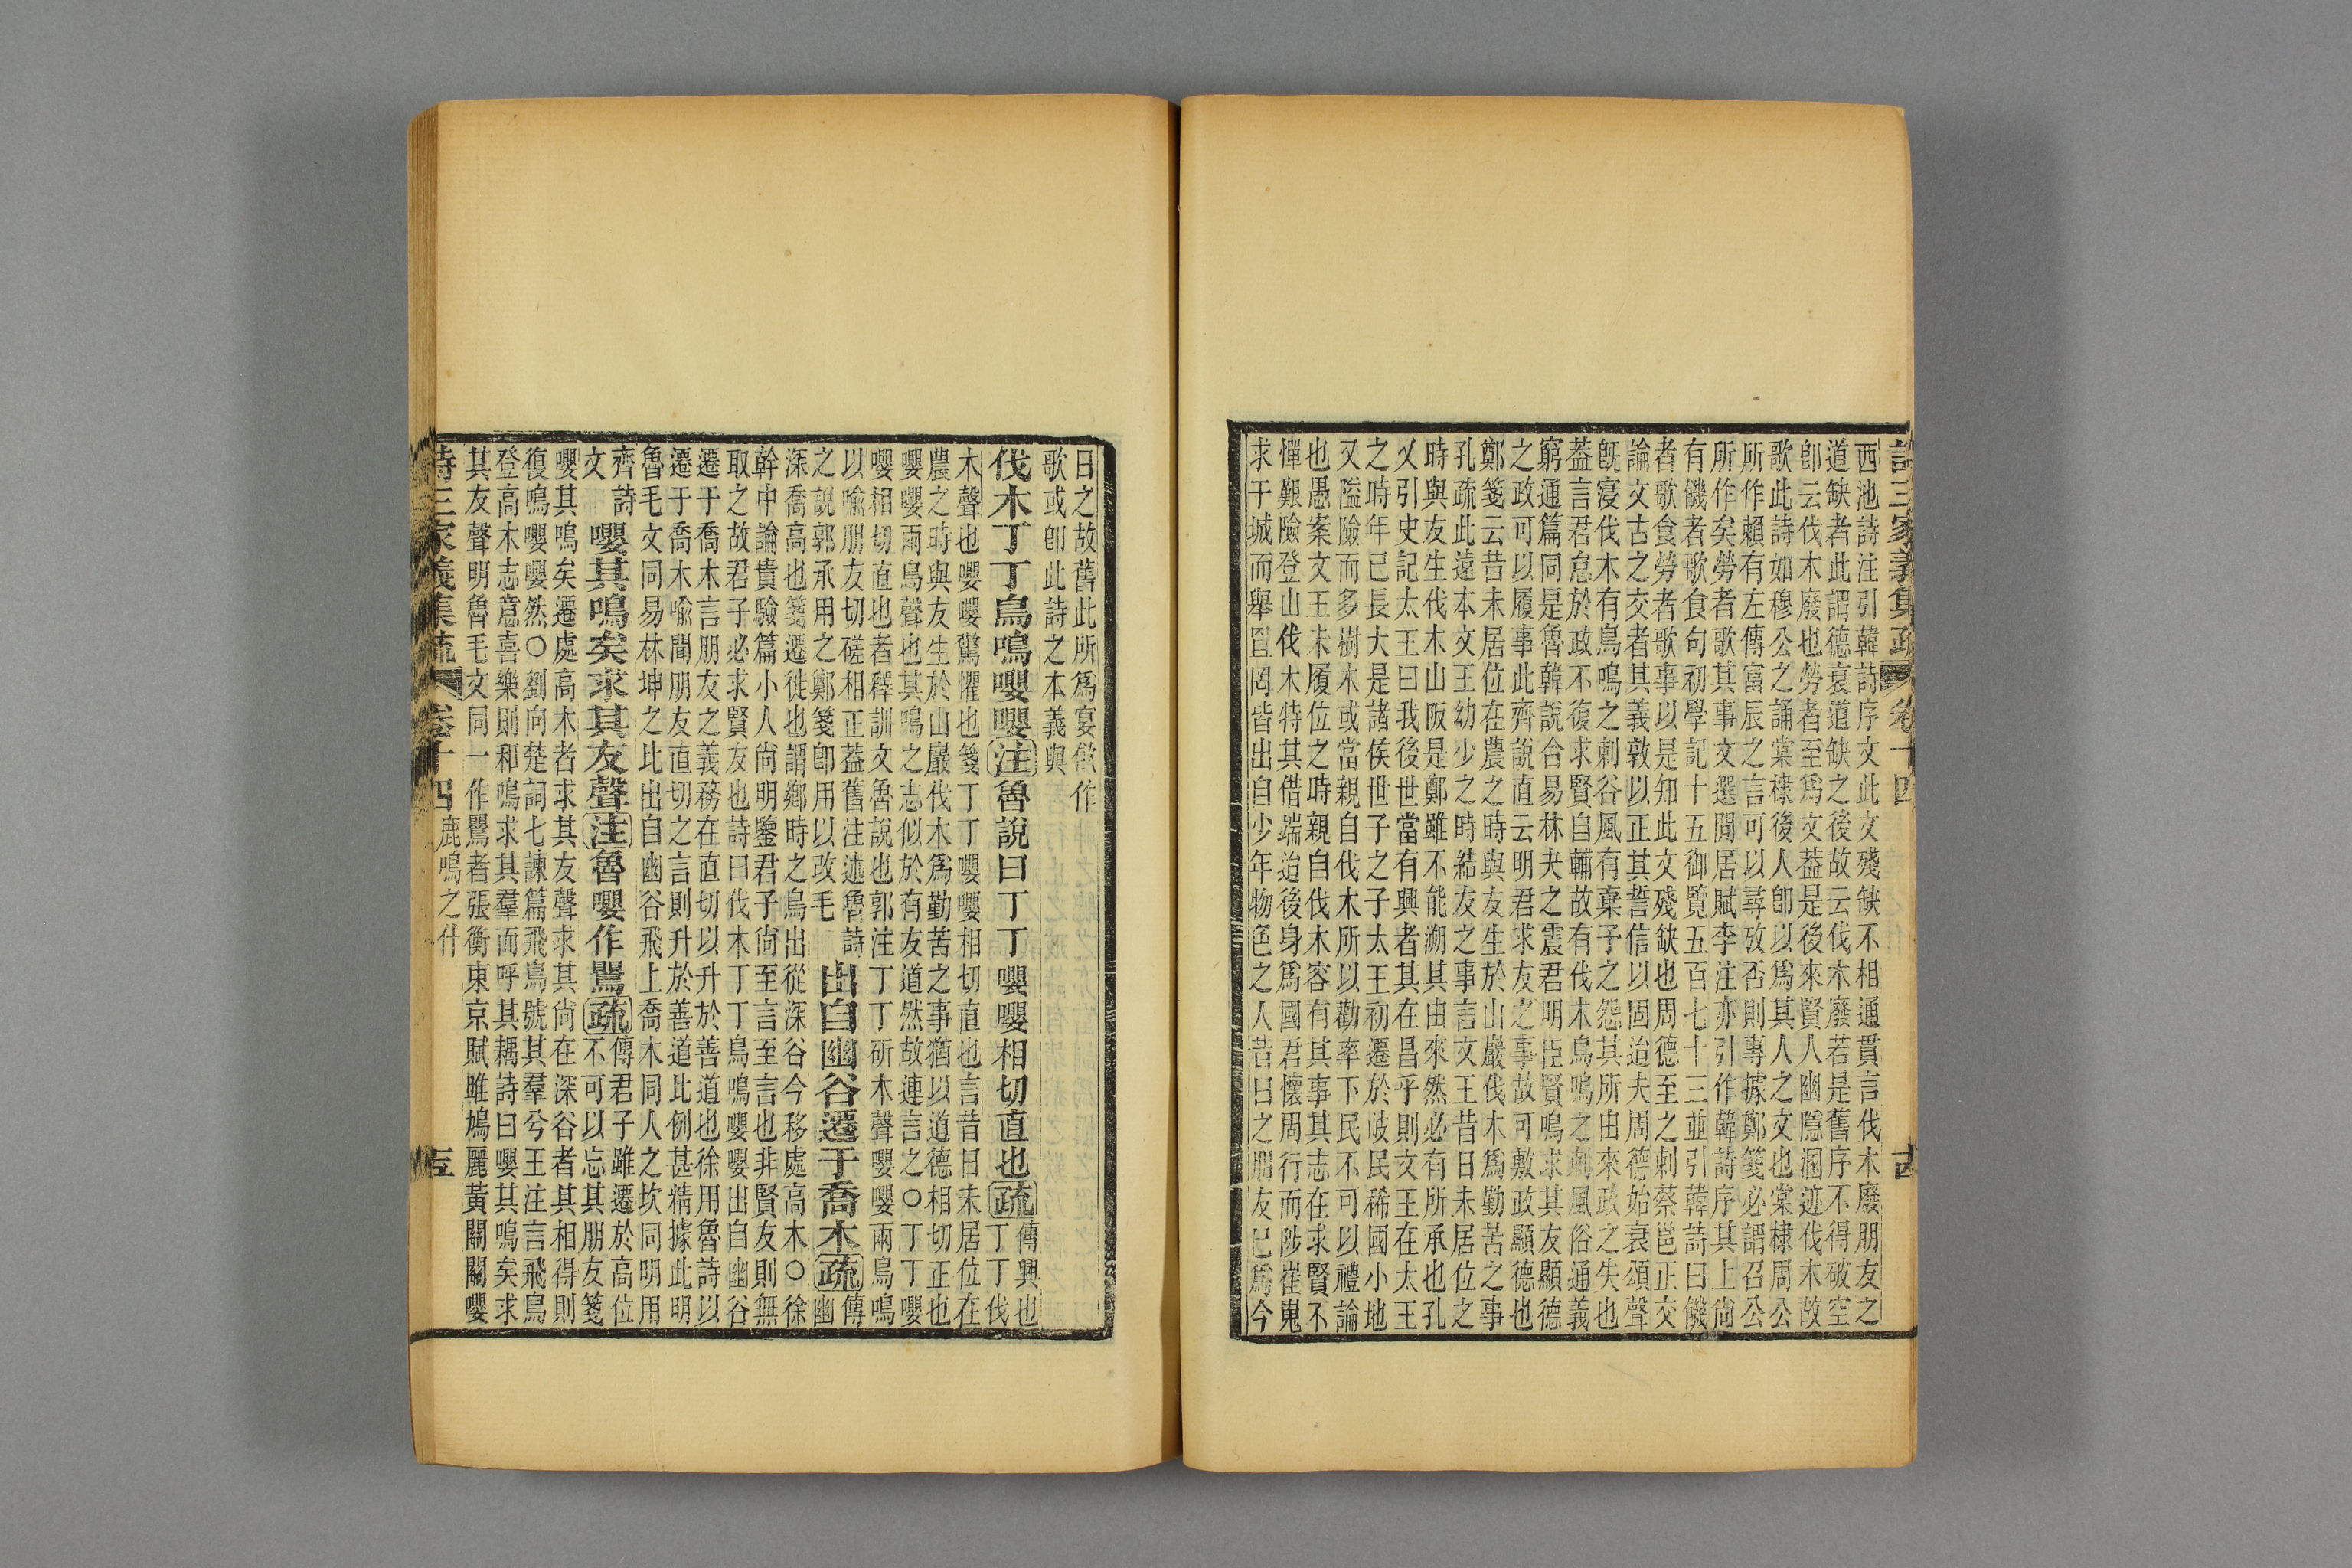 詩三家義集疏 卷十四 十四
西池詩注引韓詩序文此文殘缺不相通貫言伐木廢朋友之
道缺者此謂德衰道缺之後故云伐木廢若是舊序不得破空
卽云伐木廢也勞者至爲文葢是後來賢人幽隱溷迹伐木故
歌此詩如穆公之誦棠棣後人卽以爲其人之文也棠棣周公
所作賴有左傳富辰之言可以尋攷否則專據鄭箋必謂召公
所作矣勞者歌其事文選閒居賦李注亦引作韓詩序其上尙
有饑者歌食句初學記十五御覽五百七十三並引韓詩曰饑
者歌食勞者歌事以是知此文殘缺也周德至之刺蔡邕正交
論文古之交者其義敦以正其誓信以固迨夫周德始衰頌聲
旣寑伐木有鳥鳴之刺谷風有棄予之怨其所由來政之失也
葢言君怠於政不復求賢自輔故有伐木鳥鳴之刺風俗通義
窮通篇同是魯韓說合易林夬之震君明臣賢鳴求其友顯德
之政可以履事此齊說直云明君求友之事故可敷政顯德也
鄭箋云昔未居位在農之時與友生於山巖伐木爲勤苦之事
孔疏此遠本文王幼少之時結友之事言文王昔日未居位之
時與友生伐木山阪是鄭雖不能溯其由來然必有所承也孔
乂引史記太王曰我後世當有興者其在昌乎則文王在太王
之時年已長大是諸侯世子之子太王初遷於岐民稀國小地
又隘險而多樹木或當親自伐木所以勸率下民不可以禮論
也愚案文王未履位之時親自伐木容有其事其志在求賢不
憚艱險登山伐木特其借端迨後身爲國君懷周行而陟崔嵬
求干城而舉罝罔皆出自少年物色之人昔日之朋友已爲今
日之故舊此所爲宴飮作
歌或卽此詩之本義與
伐木丁丁鳥鳴嚶嚶注魯說曰丁丁嚶嚶相切直也疏
傳興也
丁丁伐
木聲也嚶嚶驚懼也箋丁丁嚶嚶相切直也言昔日未居位在
農之時與友生於山巖伐木爲勤苦之事猶以道德相切正也
嚶嚶兩鳥聲也其鳴之志似於有友道然故連言之○丁丁嚶
嚶相切直也者釋訓文魯說也郭注丁丁斫木聲嚶嚶兩鳥鳴
以喻朋友切磋相正葢舊注述魯詩
之說郭承用之鄭箋卽用以改毛
出自幽谷遷于喬木疏
傳
幽
深喬高也箋遷徙也謂鄉時之鳥出從深谷今移處高木○徐
幹中論貴驗篇小人尙明鑒君子尙至言至言也非賢友則無
取之故君子必求賢友也詩曰伐木丁丁鳥鳴嚶嚶出自幽谷
遷于喬木言朋友之義務在直切以升於善道也徐用魯詩以
遷于喬木喻聞朋友直切之言則升於善道比例甚精據此明
魯毛文同易林坤之比出自幽谷飛上喬木同人之坎同明用
齊詩
文
嚶其鳴矣求其友聲注魯嚶作鸎疏
傳君子雖遷於高位
不可以忘其朋友箋
嚶其鳴矣遷處高木者求其友聲求其尙在深谷者其相得則
復鳴嚶嚶然○劉向楚詞七諫篇飛鳥號其羣兮王注言飛鳥
登高木志意喜樂則和鳴求其羣而呼其耦詩曰嚶其鳴矣求
其友聲明魯毛文同一作鸎者張衡東京賦雎鳩麗黃關關嚶
詩三家義集疏 卷十四 鹿鳴之什